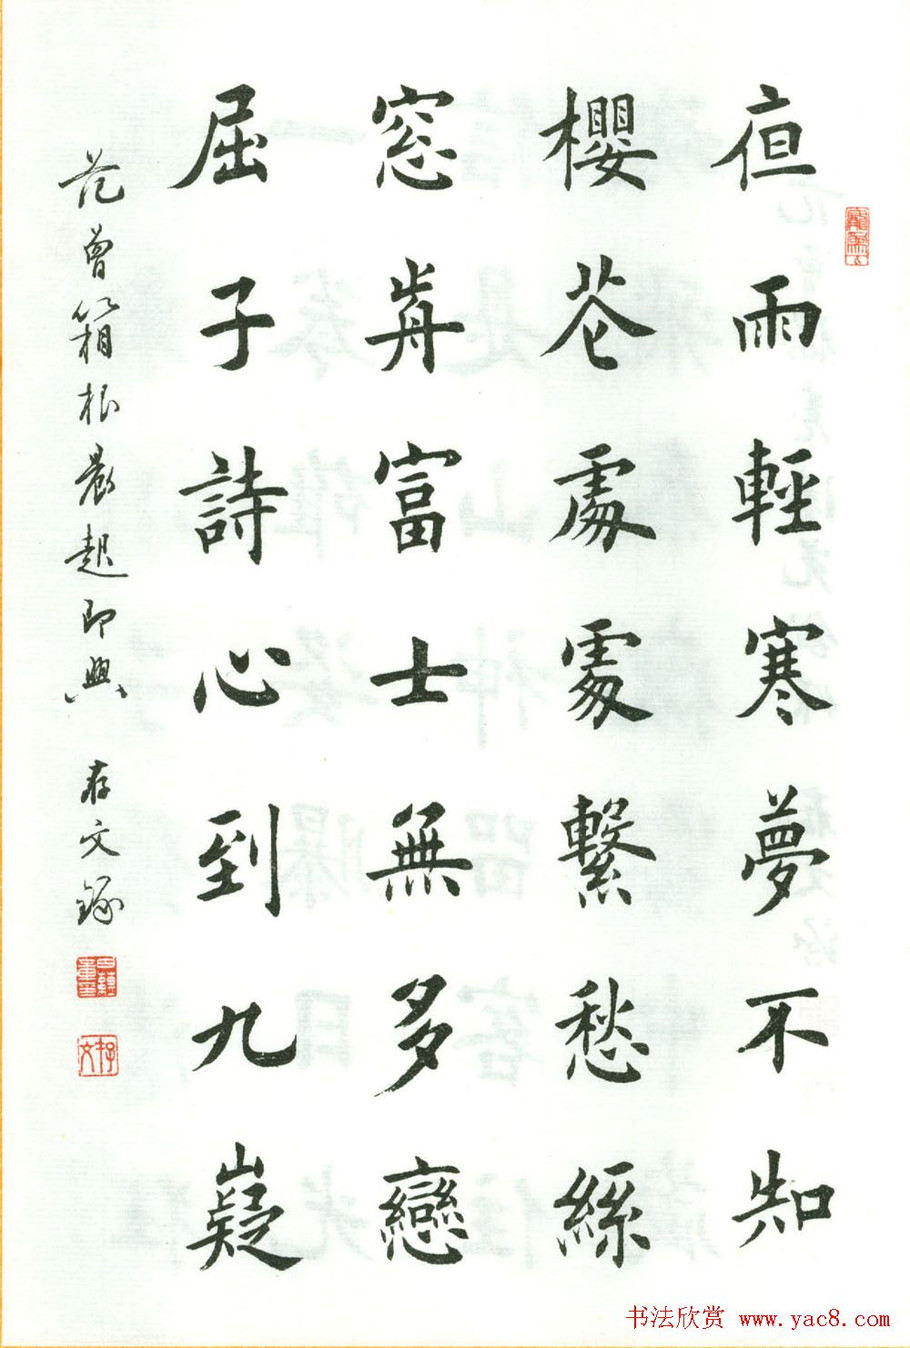 亱雨輕寒夢不知
櫻花處處繫愁絲
窓歬富士無多戀
屈子詩心到九嶷
范曾箱根晨起即興 存文錄
存文
书法欣赏 www.yac8.com